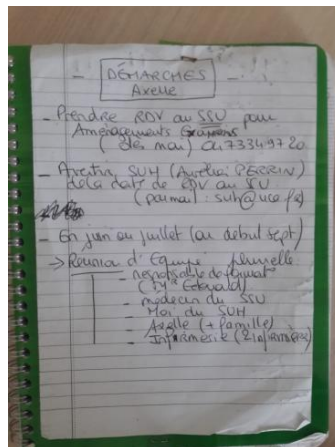 DÉMARCHES
Axelle
- Prendre RDV au SSU pour
Aménagements Examens
(dès mai) 04 73 34 97 20
- Avertir SUH (Aurélie PERRIN)
de la date de RDV au SSU
(par mail : suh@uca.fr)
- En juin ou juillet (ou début sept)
→ Réunion d'Équipe plurielle
- responsable de format
- médecin du SSU
- Moi du SUH
- Axelle (+ famille)
- Infirmière